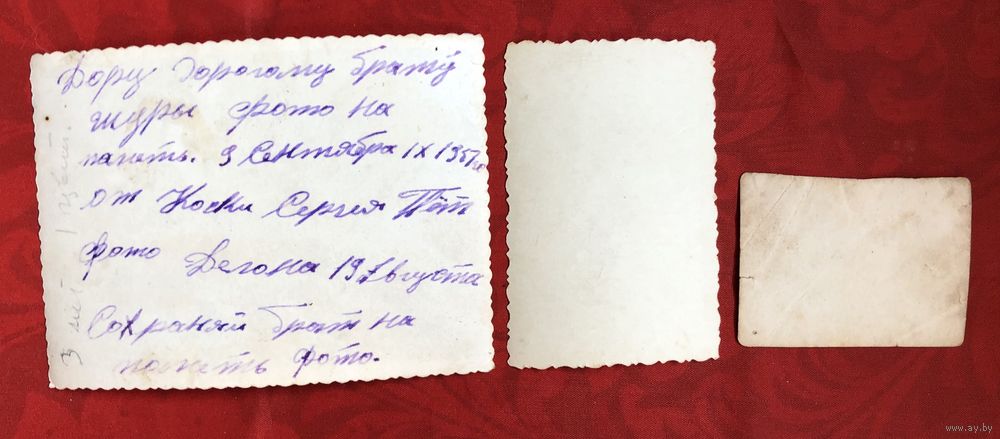 Дарю дорогому брату
Шуры фото на
память. 9 Сентября IX 1951
от Сергея
фото Делона 19 Августа
Сохраняй брат на
память фото.
3 лет
www.ay.by